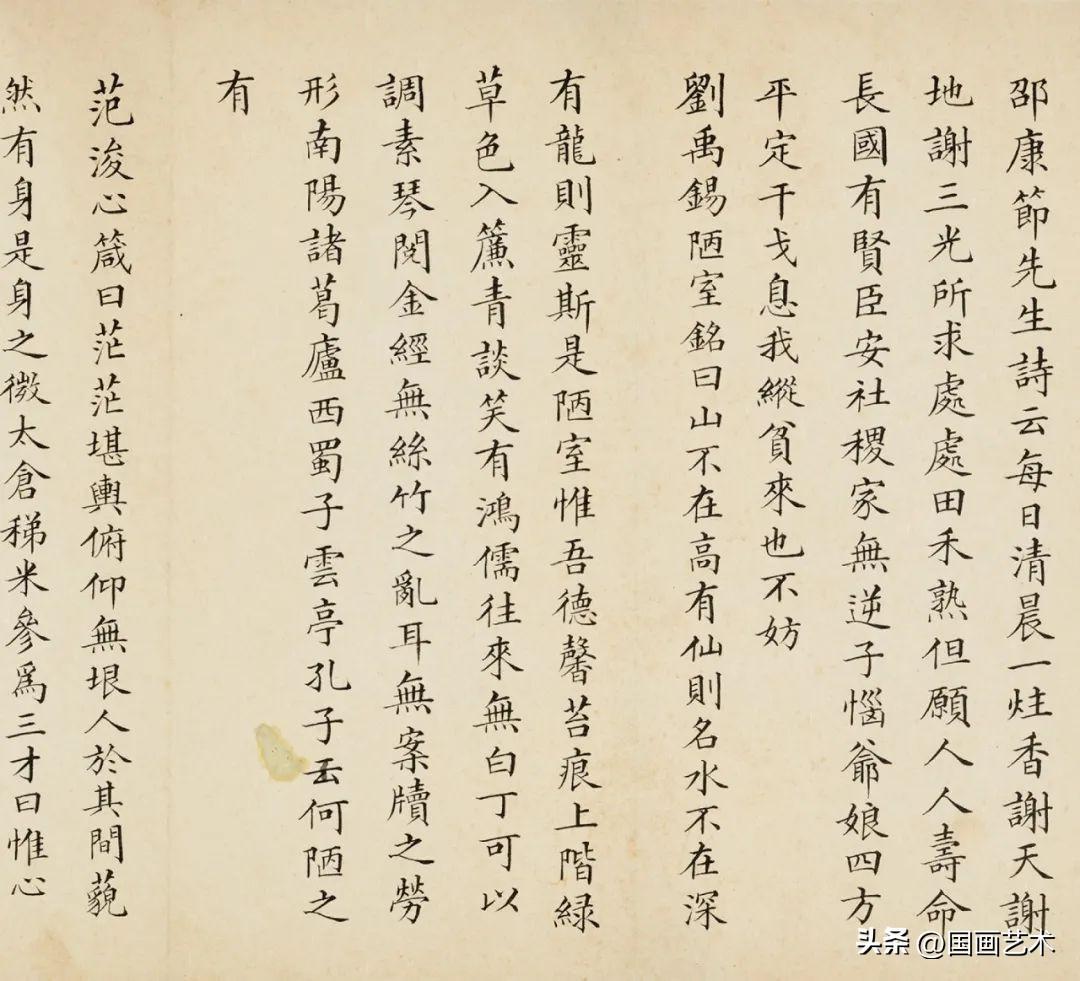 邵康節先生詩云每日清晨一炷香謝天謝
地謝三光所求處處田禾熟但願人人壽命
長國有賢臣安社稷家無逆子惱爺娘四方
平定干戈息我縱貧來也不妨
劉禹錫陋室銘曰山不在高有仙則名水不在深
有龍則靈斯是陋室惟吾德馨苔痕上階緑
草色入簾青談笑有鴻儒往來無白丁可以
調素琴閱金經無絲竹之亂耳無案牘之勞
形南陽諸葛廬西蜀子雲亭孔子云何陋之
有
范浚心箴曰茫茫堪輿俯仰無垠人於其間藐
然有身是身之微太倉稊米參爲三才曰惟心
头条 @国画艺术